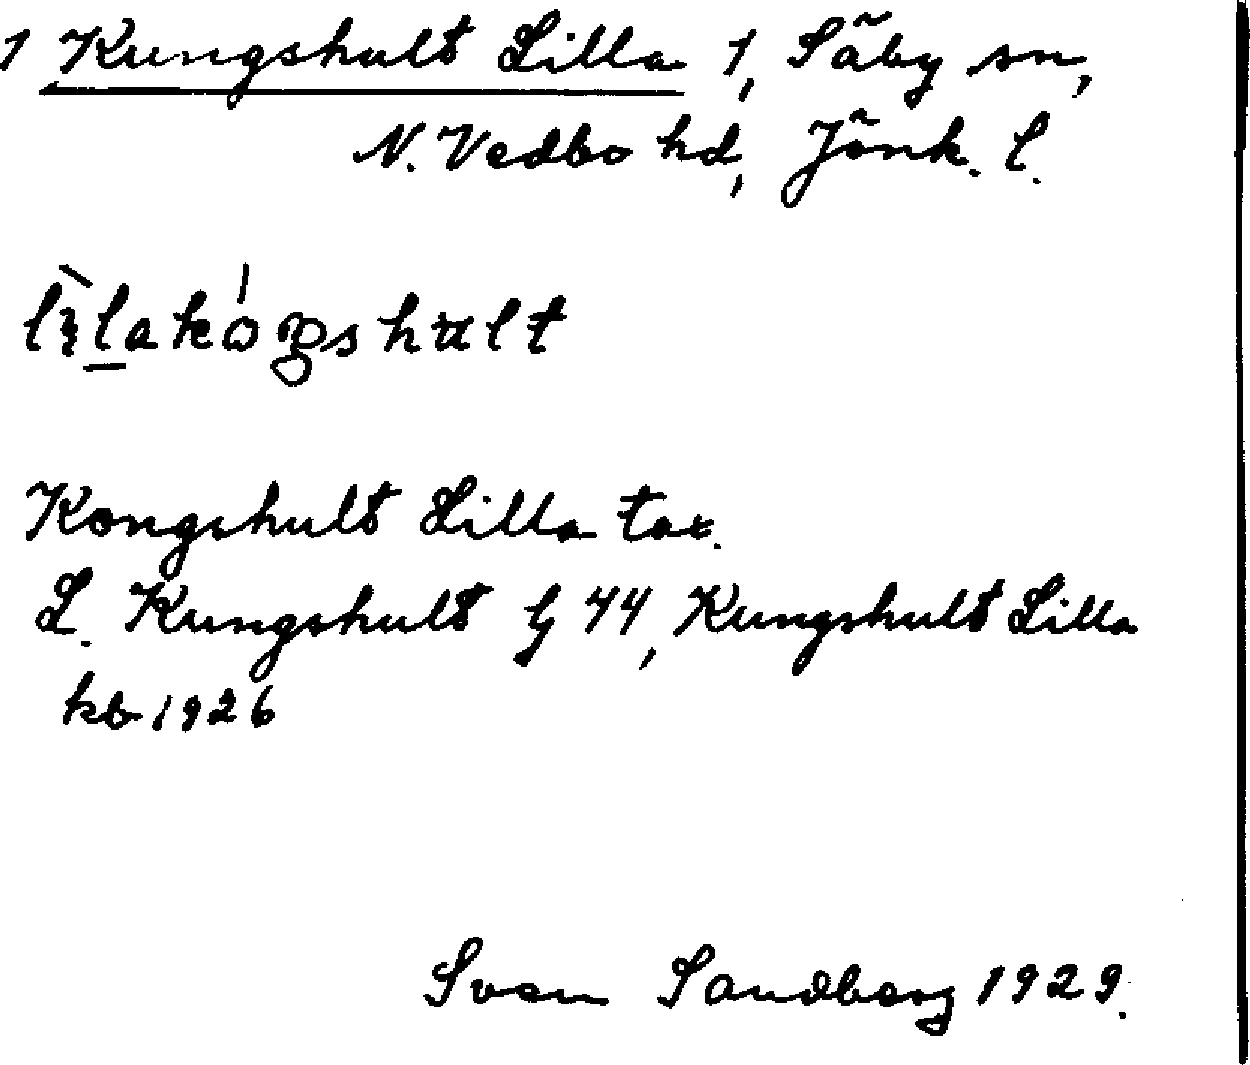 1 Kungshult Lilla 1, Säby sn,
N. Vedbo hd, Jönk. l.
Kongshult Lilla tax.
L. Kungshult G 44, Kungshult Lilla
kb 1926
Sven Sandberg 1929.